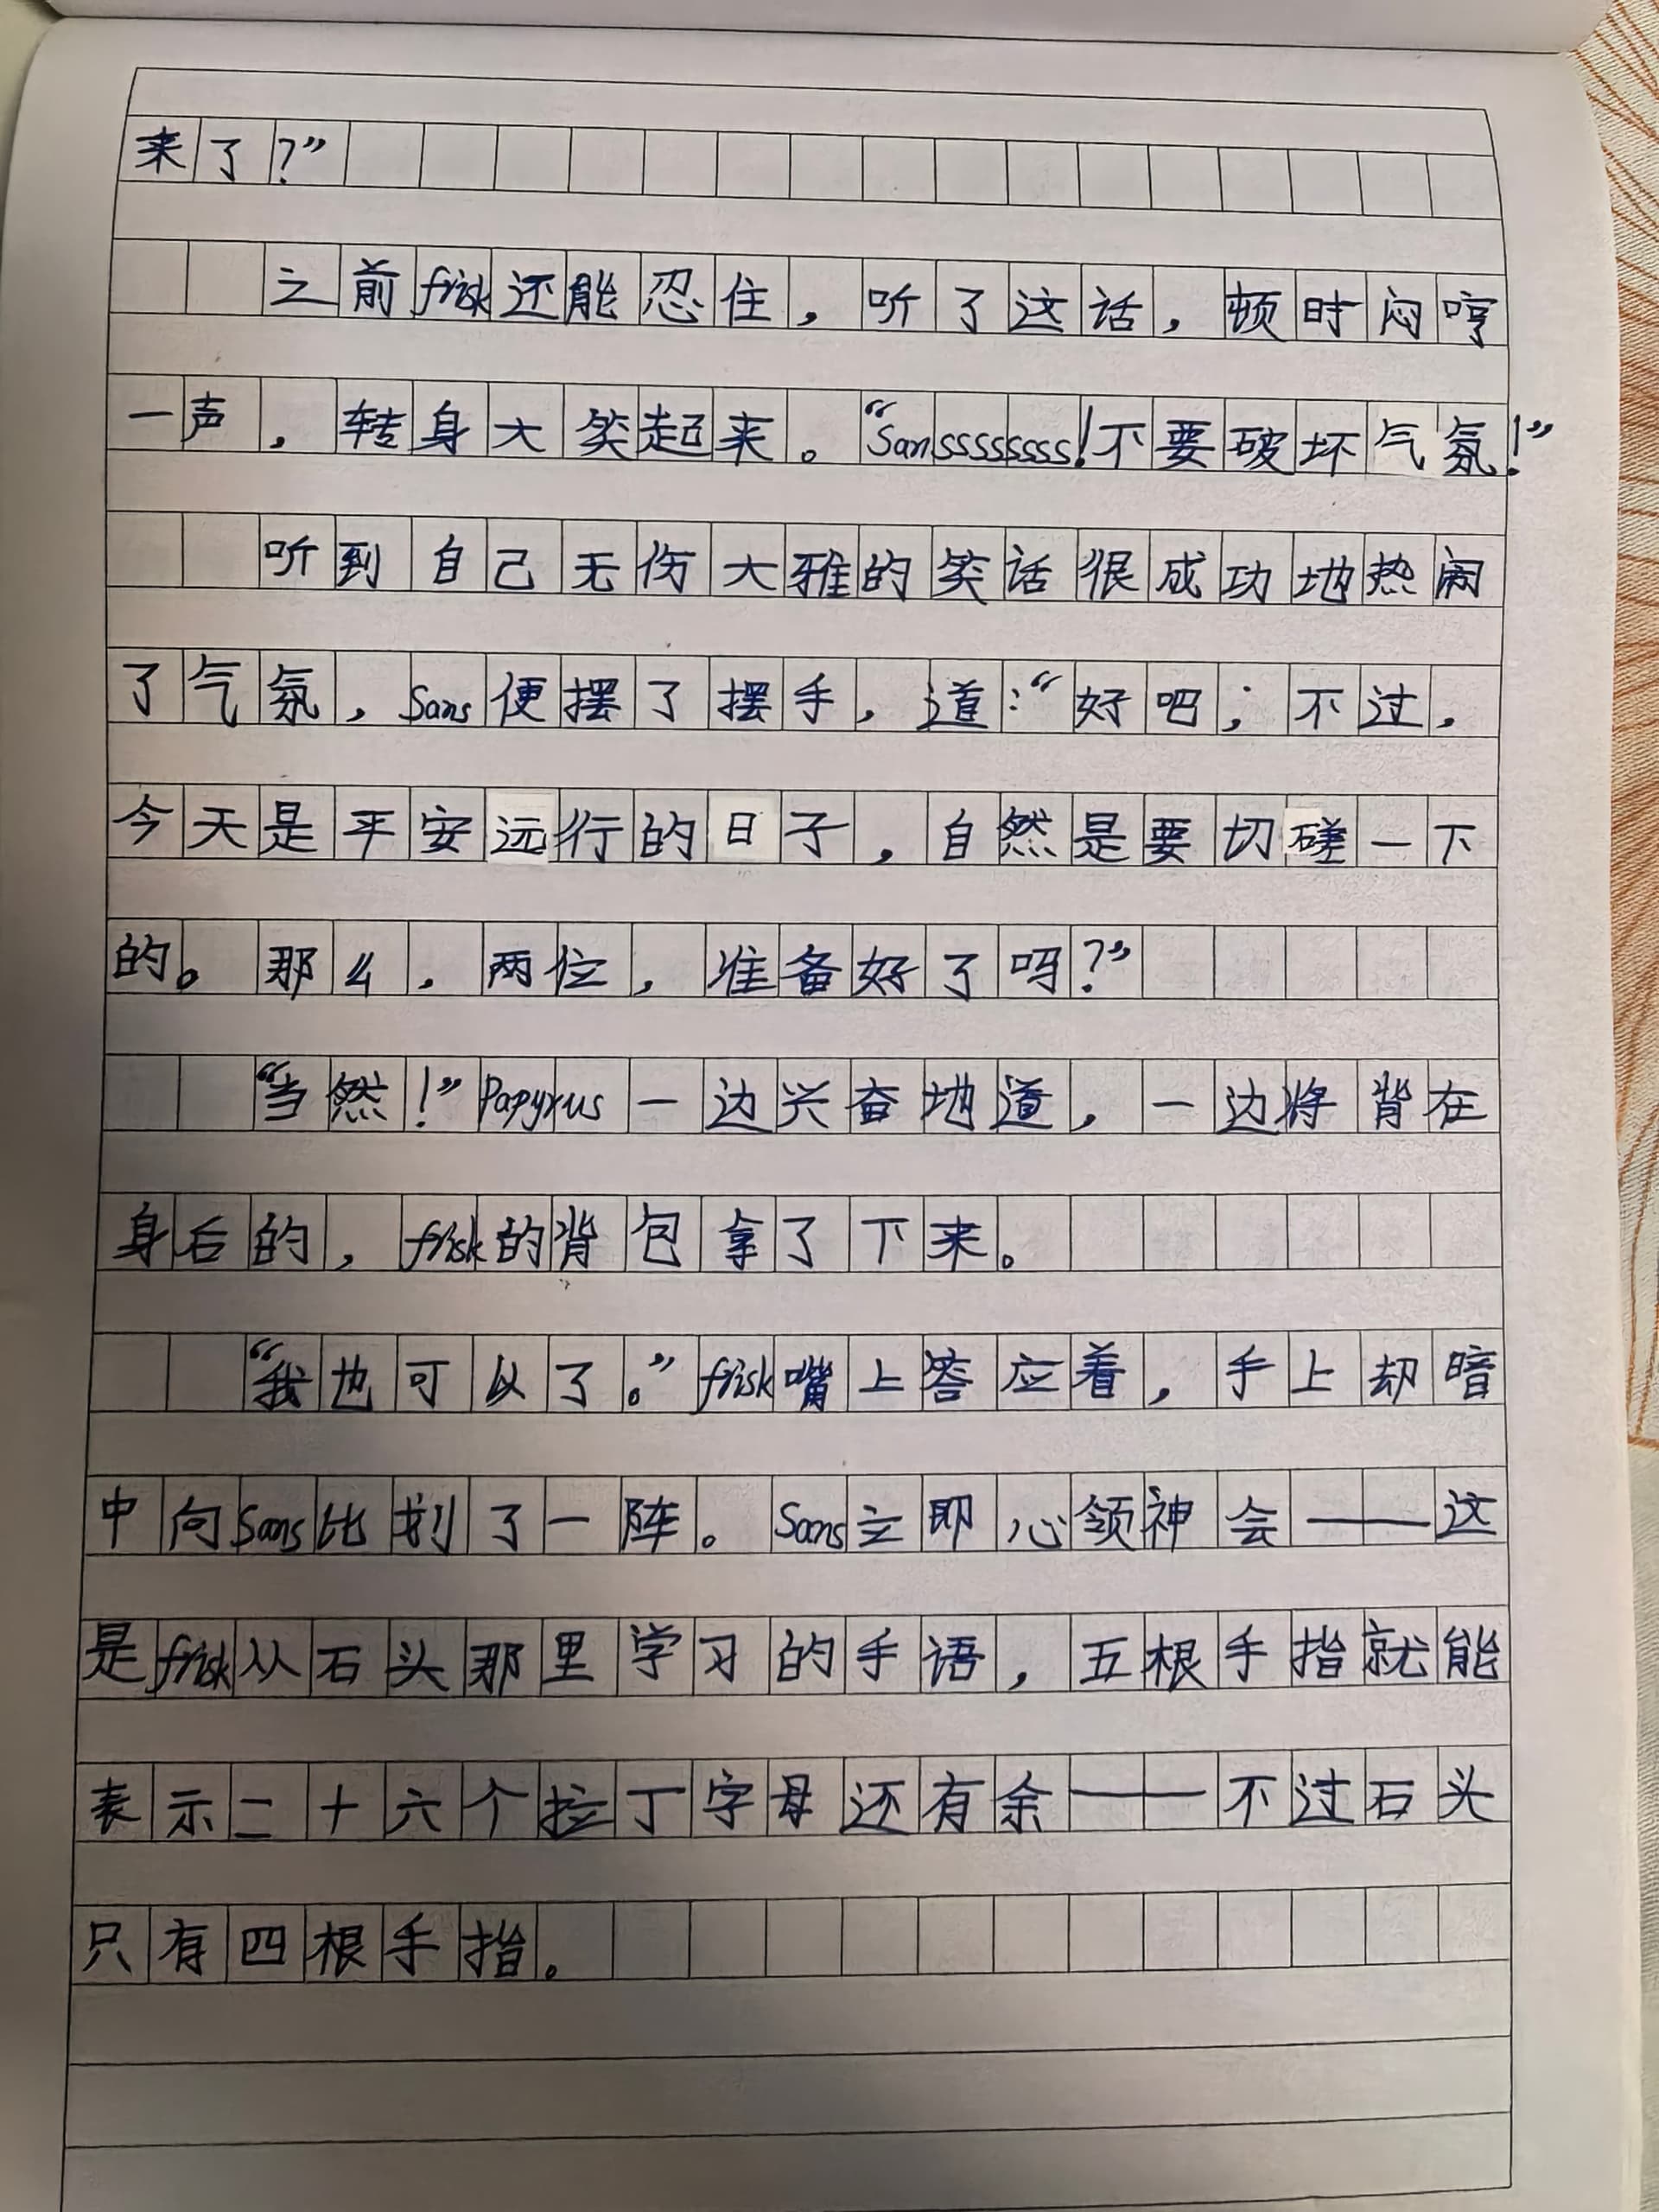 来了？”
之前frisk还能忍住，听了这话，顿时闷哼
一声，转身大笑起来。“Sanssssssss！不要破坏气氛！”
听到自己无伤大雅的笑话很成功地热闹
了气氛，Sans便摆了摆手，道：“好吧；不过，
今天是平安远行的日子，自然是要切磋一下
的。那么，两位，准备好了吗？”
“当然！”Papyrus一边兴奋地道，一边将背在
身后的，frisk的背包拿了下来。
“我也可以了。”frisk嘴上答应着，手上却暗
中向Sans比划了一阵。Sans立即心领神会——这
是frisk从石头那里学习的手语，五根手指就能
表示二十六个拉丁字母还有余——不过石头
只有四根手指。